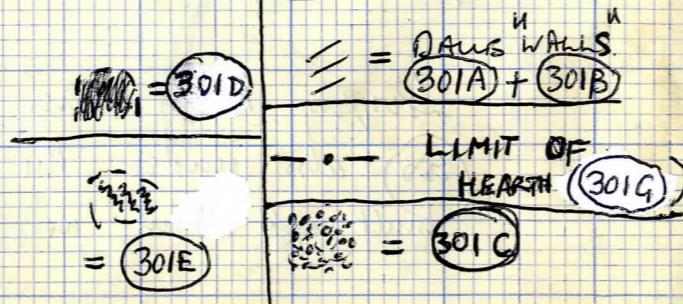 = 301D
= 301E
= DAUB "WALLS"
301A + 301B
LIMIT OF
HEARTH (301G)
= 301C